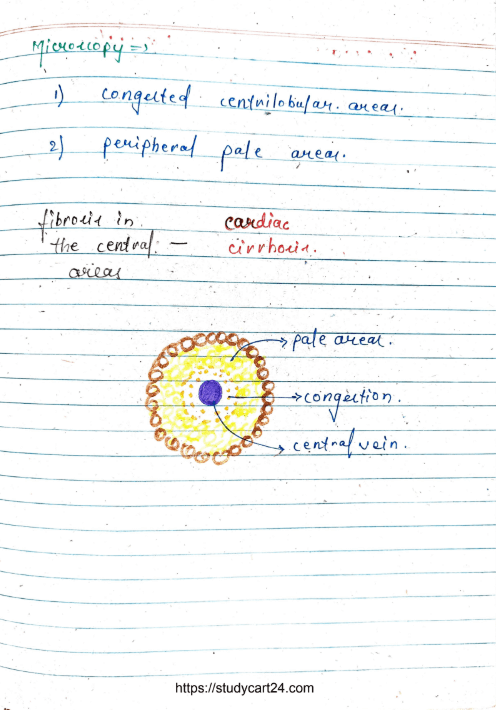 Microscopy =>
1) congested centrilobular areas.
2) peripheral pale areas.
fibrosis in the central areas — cardiac cirrhosis.
pale areas.
congection.
central vein.
https://studycart24.com